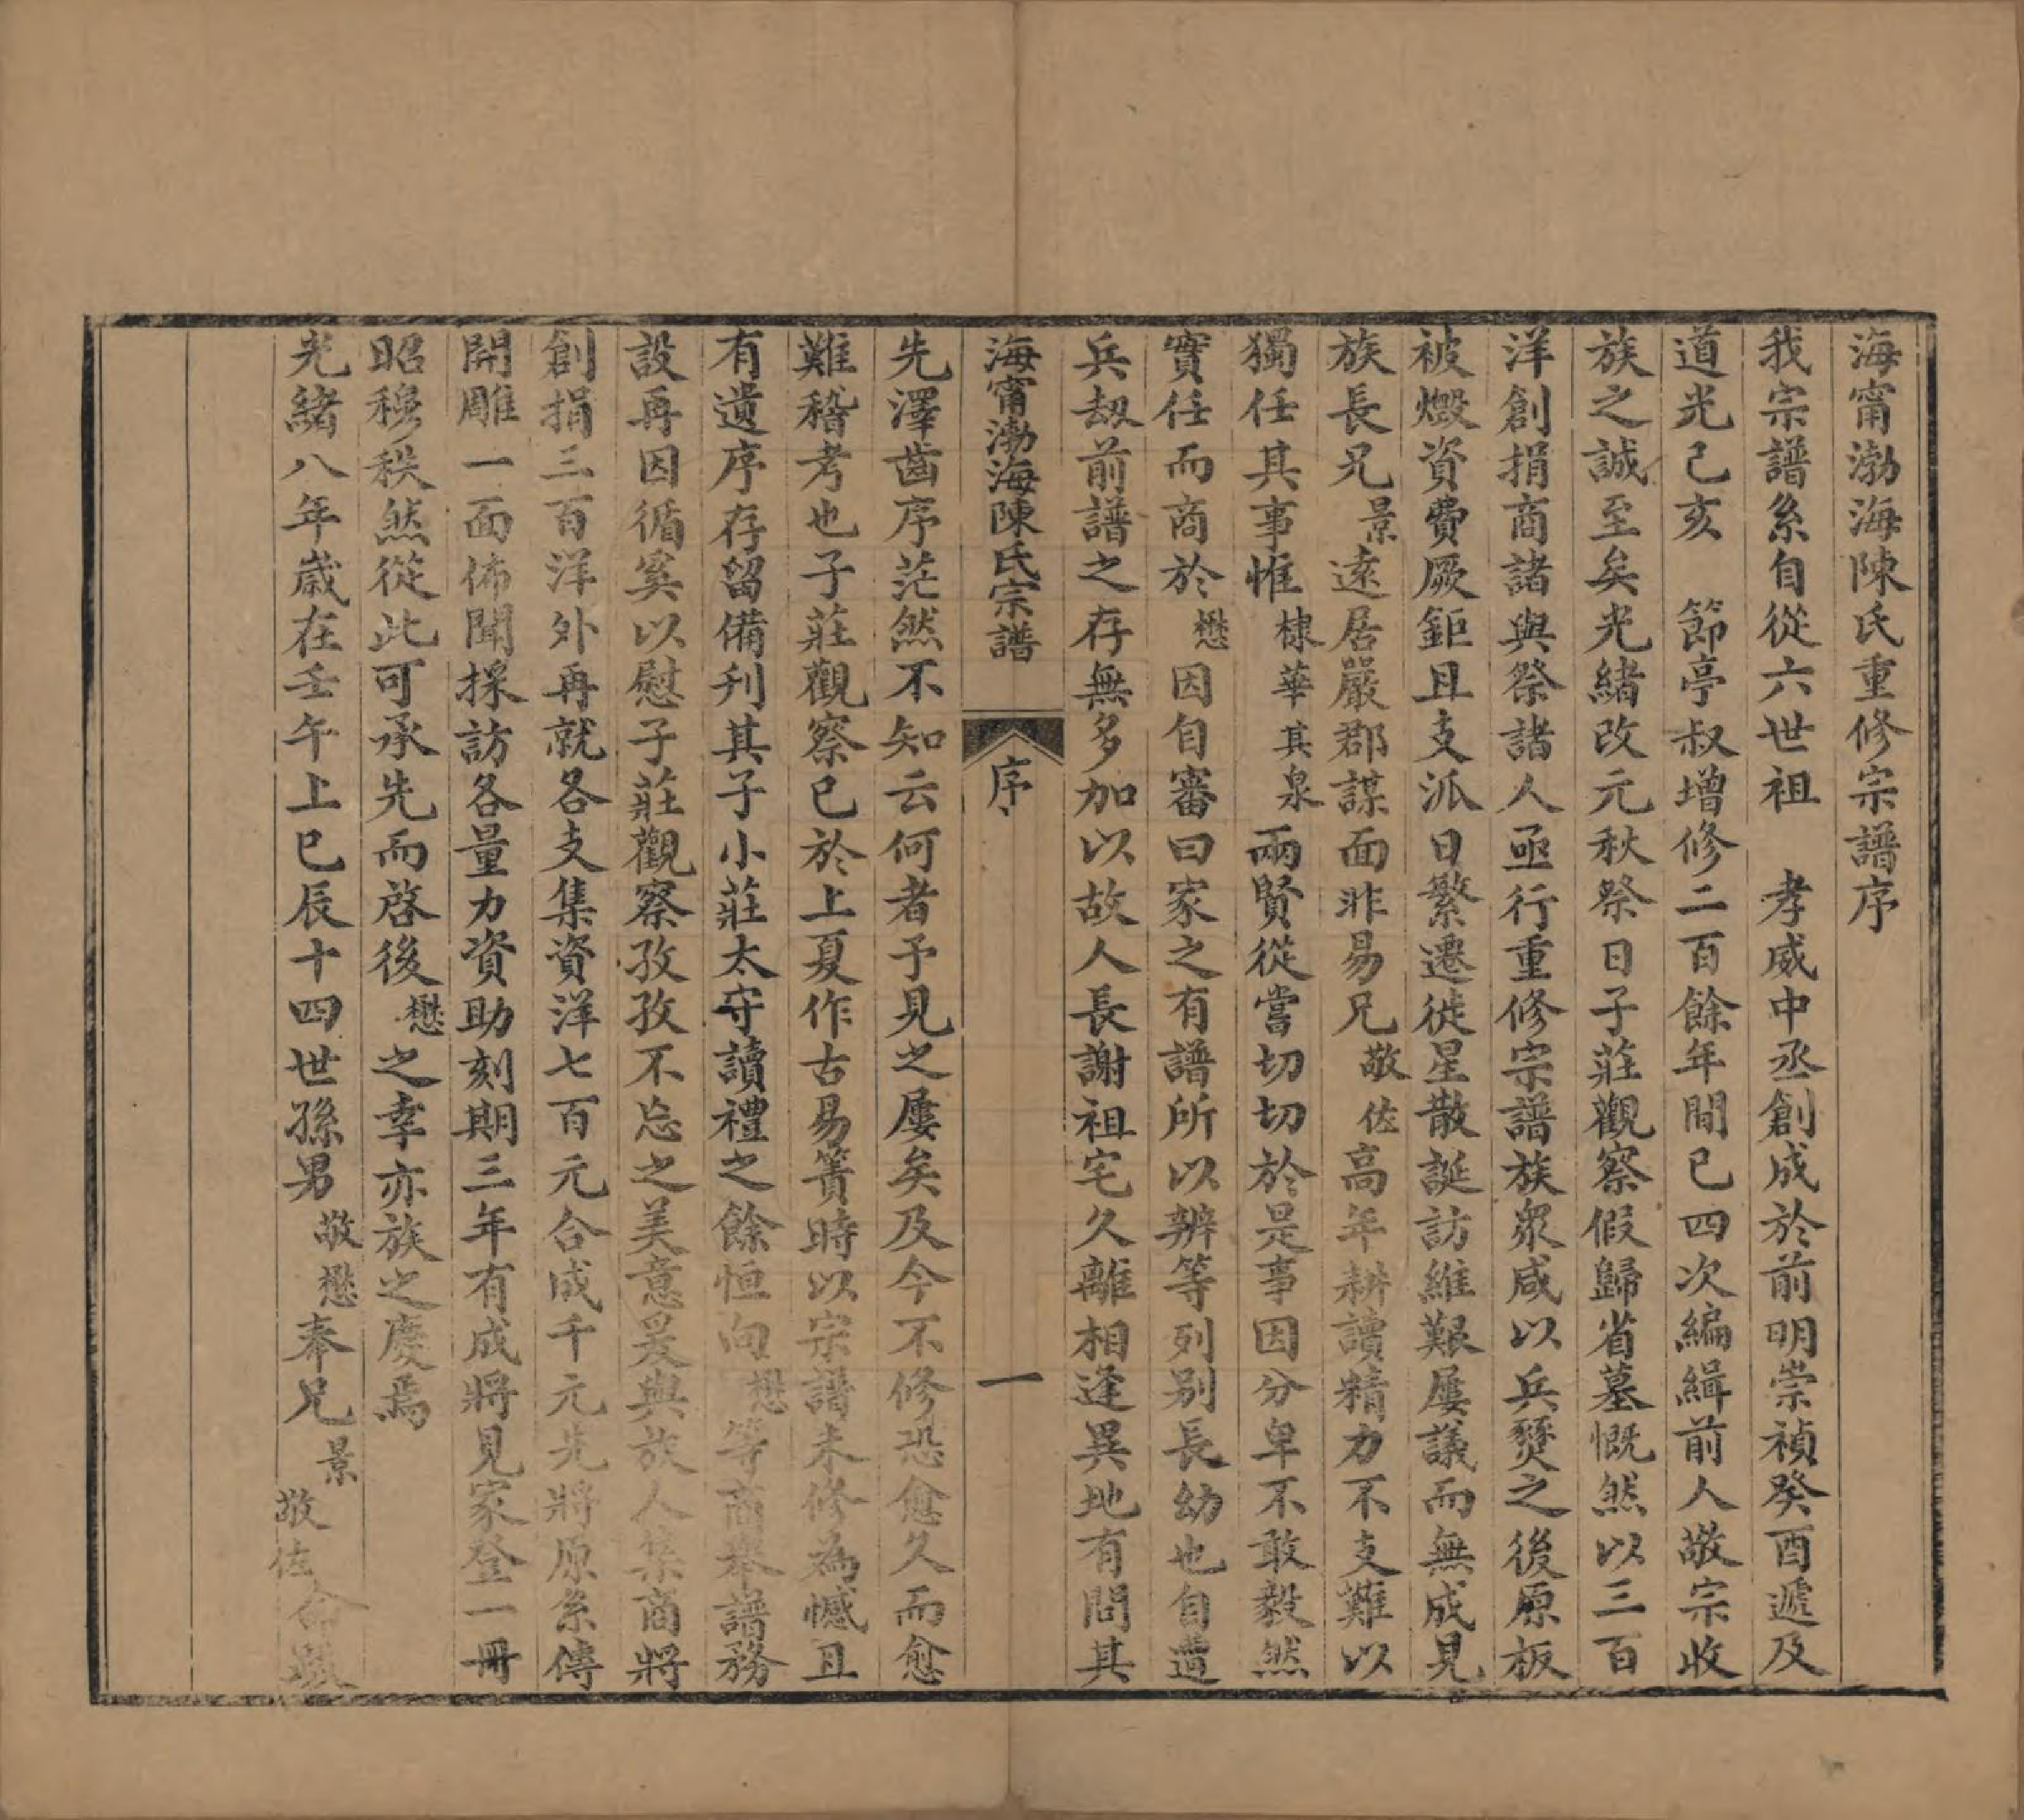 海甯渤海陳氏重修宗譜序
我宗譜系自從六世祖　孝威中丞創成於前明崇禎癸酉遞及
道光己亥　節亭叔增修二百餘年間已四次編緝前人敬宗收
族之誠至矣光緒改元秋祭日子莊觀察假歸省墓慨然以三百
洋創捐商諸與祭諸人亟行重修宗譜族衆咸以兵燹之後原板
被燬資費厥鉅且支派日繁遷徙星散誕訪維艱屢議而無成見
族長兄景遠居嚴郡謀面非易兄敬佐高年耕讀精力不支難以
獨任其事惟棣華其泉兩賢從嘗切切於是事因分卑不敢毅然
實任而商於懋因自審曰家之有譜所以辨等列别長幼也自遭
兵刼前譜之存無多加以故人長謝祖宅久離相逢異地有問其
海甯渤海陳氏宗譜　序　一
先澤齒序茫然不知云何者予見之屢矣及今不修恐愈久而愈
難稽考也子莊觀察已於上夏作古易簀時以宗譜未修為憾且
有遺序存留備刋其子小莊太守讀禮之餘恒向懋等商舉譜務
設再因循奚以慰子莊觀察孜孜不忘之美意爰與族人集商將
創捐三百洋外再就各支集資洋七百元合成千元先將原系傳
開雕一面佈聞採訪各量力資助刻期三年有成將見家登一冊
昭穆秩然從此可承先而啓後懋之幸亦族之慶焉
光緒八年歲在壬午上巳辰十四世孫男敬懋奉兄景敬佐命